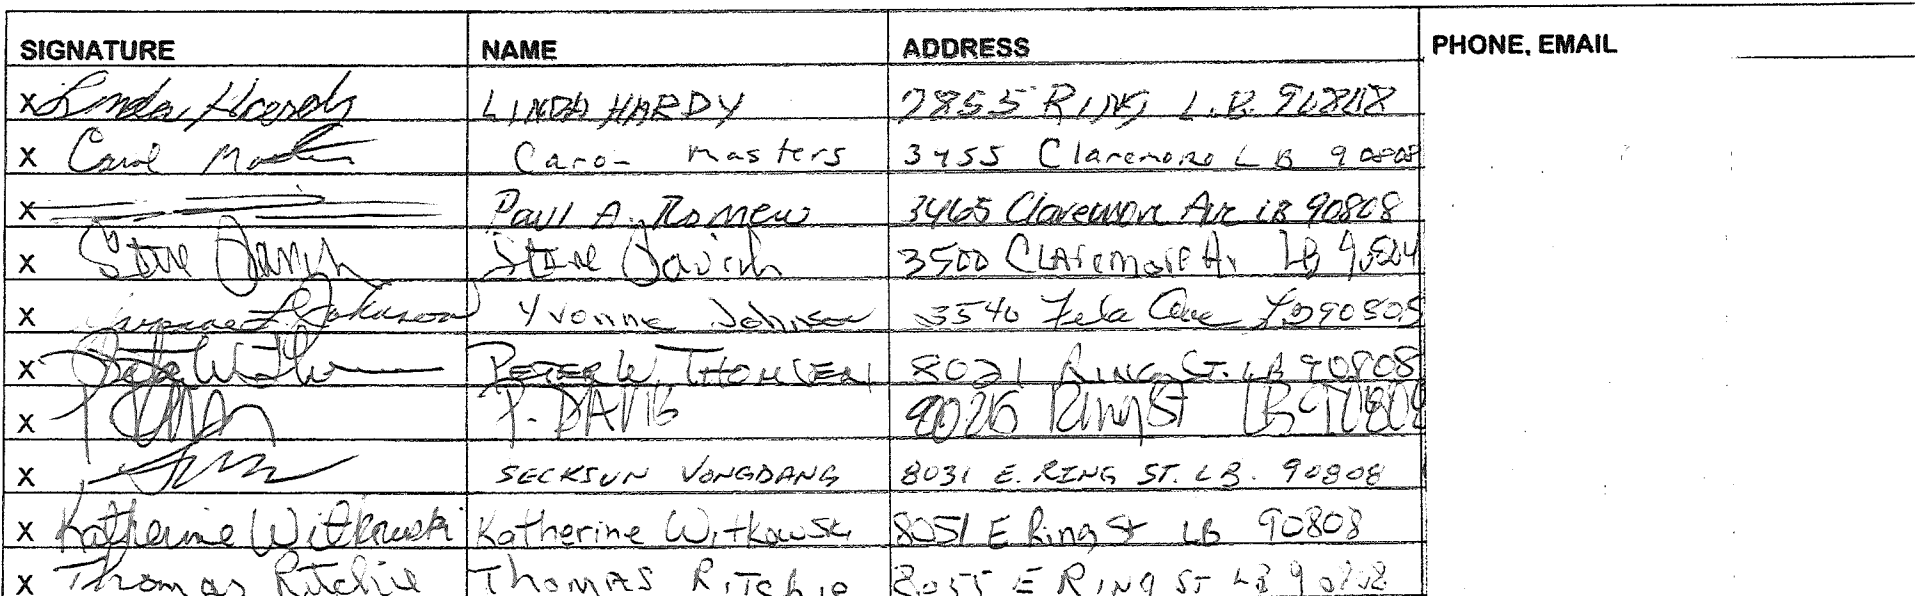 SIGNATURE NAME ADDRESS PHONE, EMAIL
X Linda Hardy LINDA HARDY 7855 RING L.B. 90808
X Carol Masters Carol Masters 3455 Claremore LB 90808
X Paul A. Romew 3465 Claremore Ave LB 90808
X Steve Javich Steve Javich 3500 CLAremore Av LB
X Yvonne Johnson Yvonne Johnson 3540 Ave LB
X PETER W. THOMSEN 8021 RING ST. LB 90808
X P. DAVIS Ring St LB 90808
X SECKSUN VONGDANG 8031 E. RING ST. LB. 90808
X Katherine Witkowski Katherine Witkowski 8051 E Ring St LB 90808
X Thomas Ritchie Thomas Ritchie 8055 E RING ST LB 90808